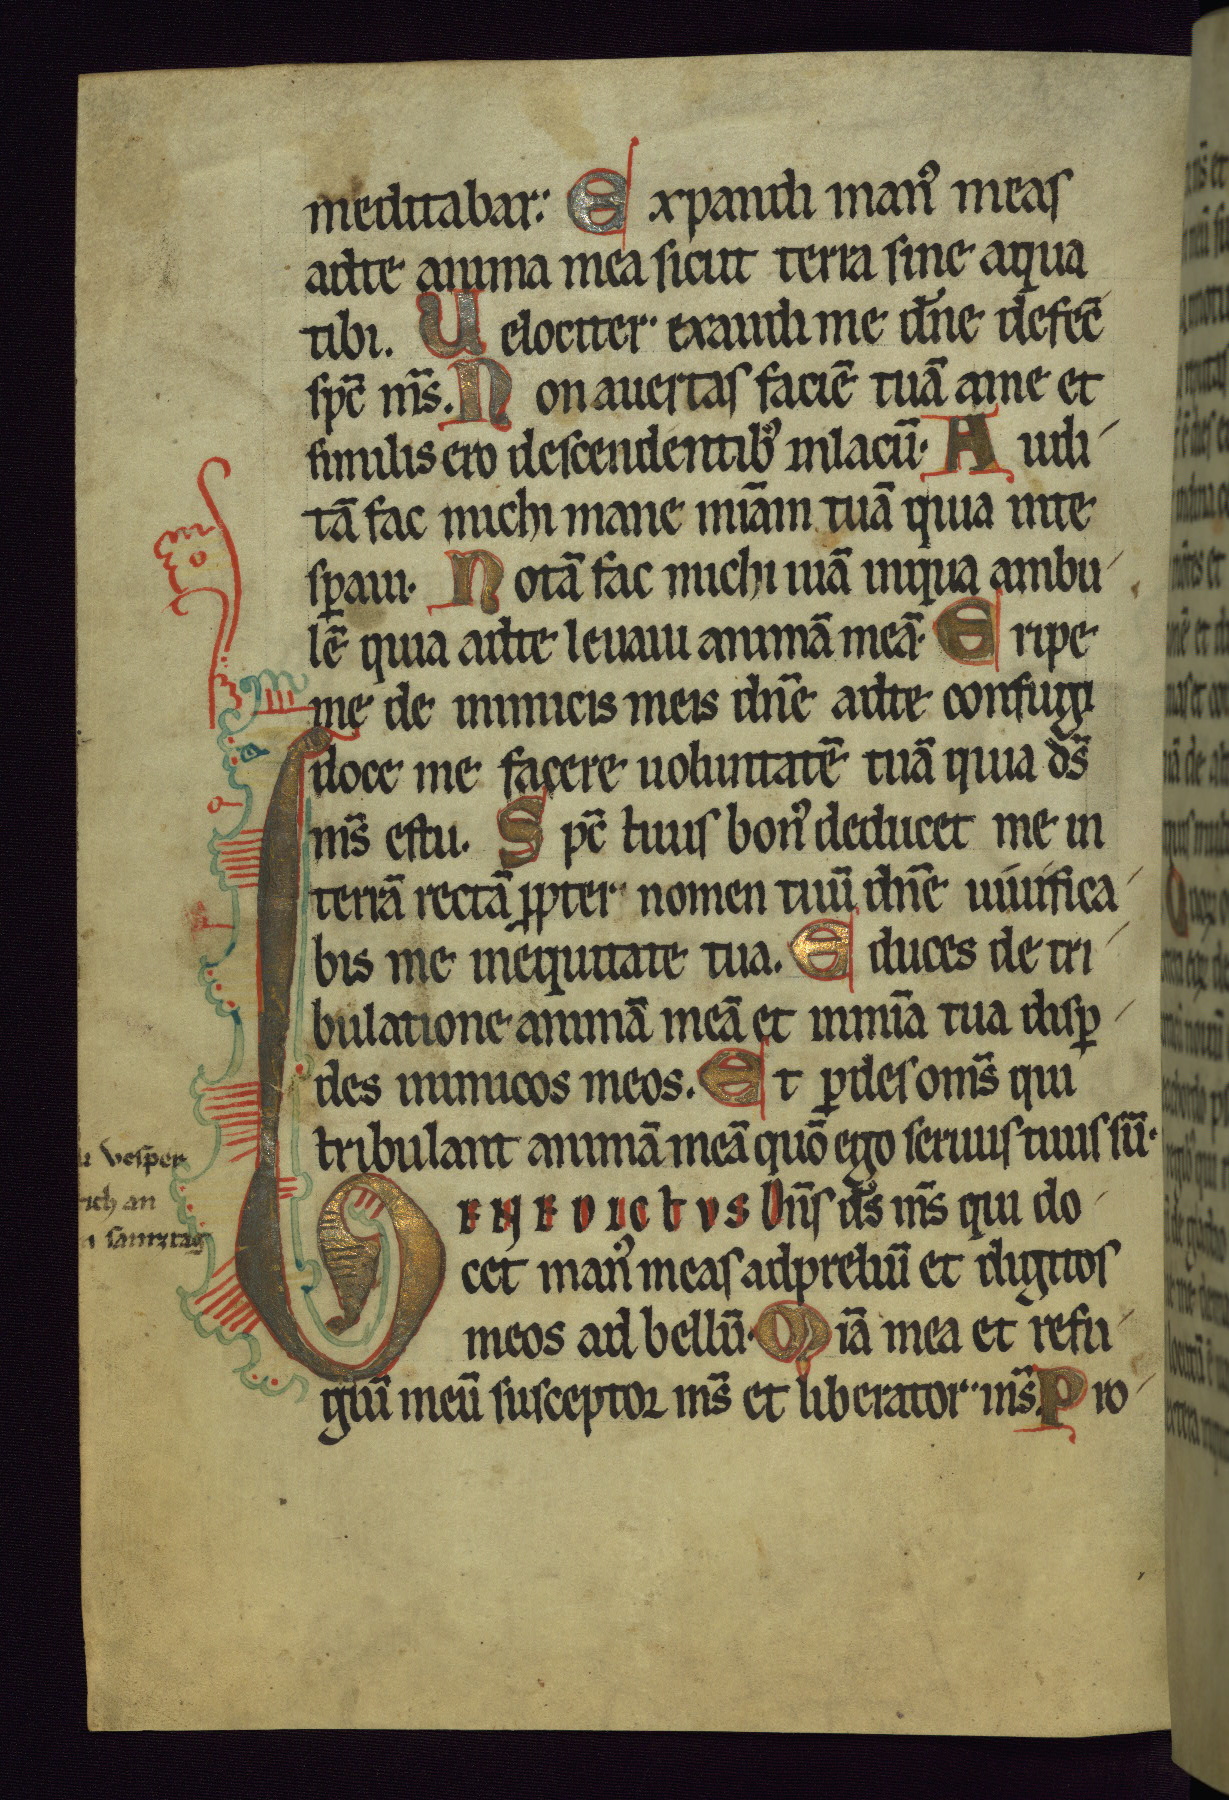 meditabar. Expandi man᾽ meas
adte anima mea sicut terra sine aqua
tibi. Velociter exaudi me dn̄e defec̄
spc̄ ms̄. Non auertas faciē tuā ame et
similis ero descendentib᾽ inlacū. Audi
tā fac michi mane mīam tuā quia inte
sꝑaui. Notā fac michi uiā inqua ambu
lē quia adte leuaui animā meā. Eripe
me de inimicis meis dn̄e adte confugi
doce me facere uoluntatē tuā quia ds̄
ms̄ estu. Spc̄ tuus bon᾽ deducet me in
terrā rectā ꝓpter nomen tuū dn̄e uiuifica
bis me inequitate tua. Educes de tri
bulatione animā meā et inmīa tua disꝑ
des inimicos meos. Et ꝑdes oms̄ qui
tribulant animā meā quō ego seruus tuus sū.
BENEDICTVS dn̄s ds̄ ms̄ qui do
cet man᾽ meas adpreliū et digitos
meos ad bellū. Mīa mea et refu
giū meū susceptor ms̄ et liberator ms̄. Pro
vesper
rich an
samztag